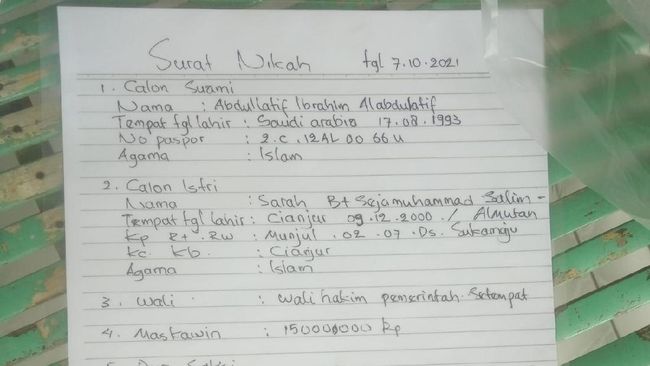 Surat Nikah tgl 7.10.2021
1. Calon Suami
Nama : Abdullatif Ibrahim Alabdulatif
Tempat tgl lahir : Saudi arabia 17.08.1993
No paspor :
Agama : Islam
2. Calon Istri
Nama : Sarah Bt Sejamuhammad Salim -
Tempat tgl lahir : Cianjur 09.12.2000 / Almutan
Kp Rt . Rw : Munjul . 02 . 07 . Ds. Sukamaju
Kc . Kb . : Cianjur
Agama : Islam
3. Wali : Wali hakim pemerintah Setempat
4. Maskawin : Rp